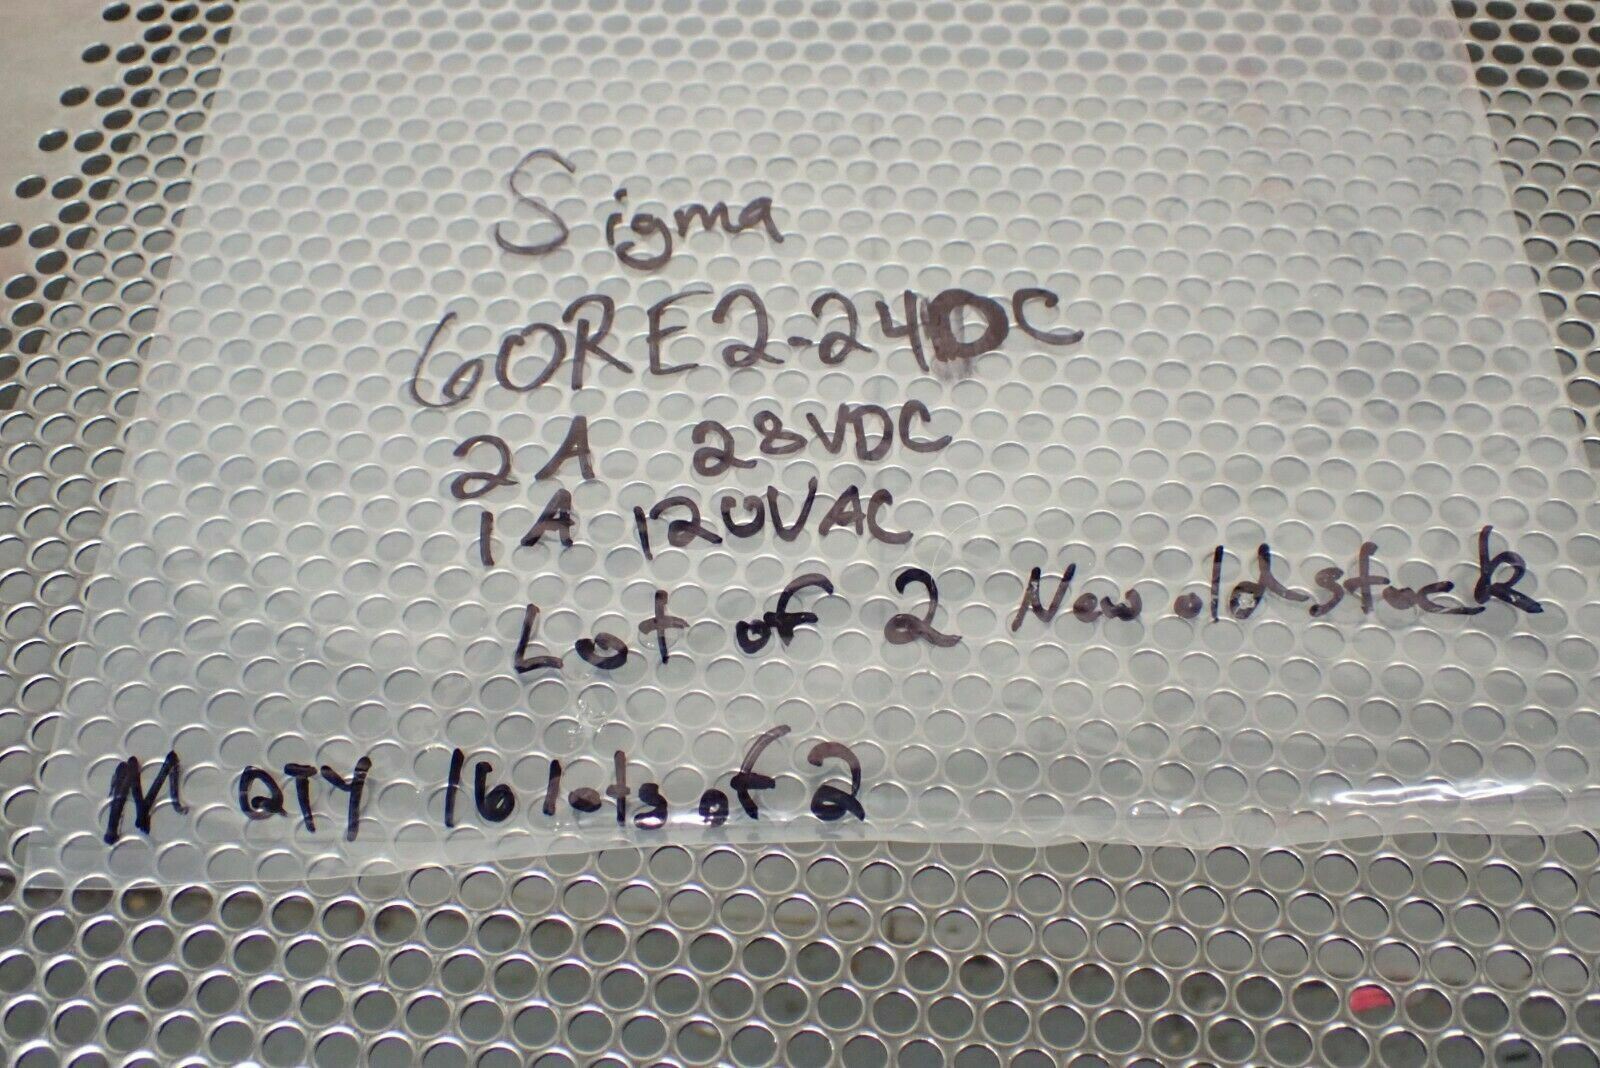 Sigma
60RE2-24DC
2A 28VDC
1A 120VAC
Lot of 2 New old stock
M QTY 16 lots of 2